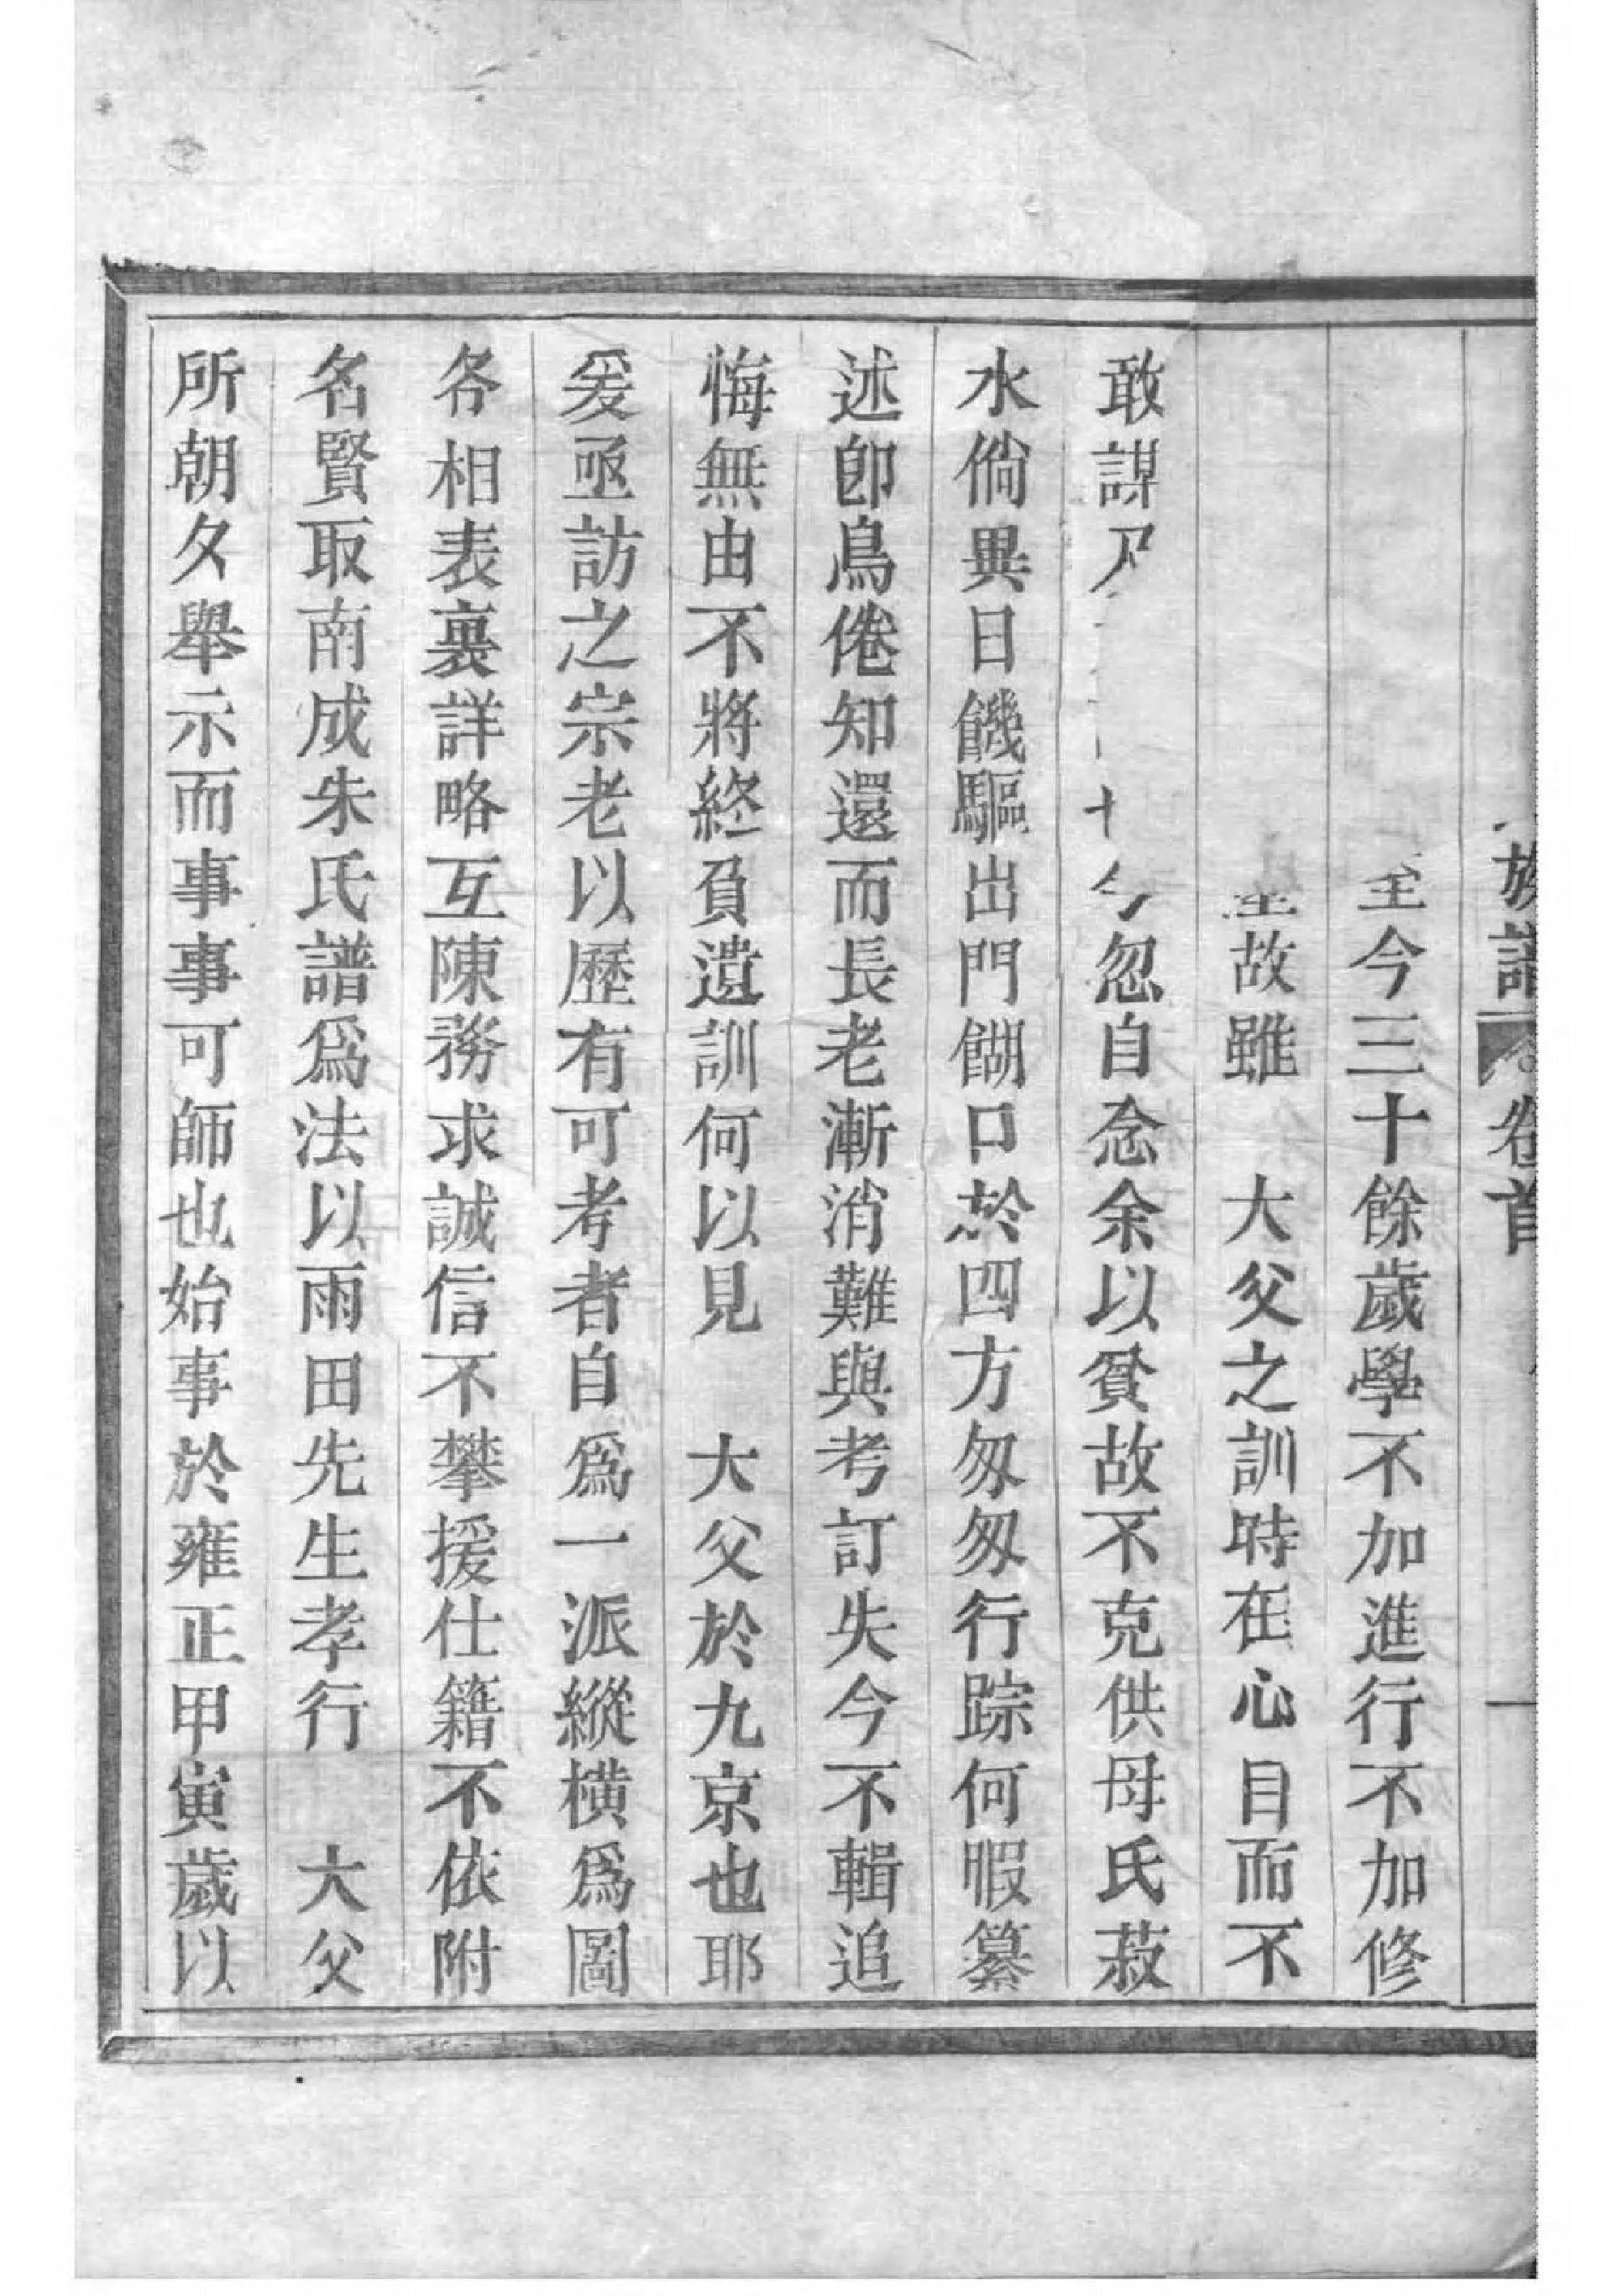 族譜 卷首 一
至今三十餘歲學不加進行不加修
故雖 大父之訓時在心目而不
敢謀 今忽自念余以貧故不克供母氏菽
水倘異日饑驅出門餬口於四方匆匆行踪何暇纂
述卽鳥倦知還而長老漸消難與考訂失今不輯追
悔無由不將終負遺訓何以見 大父於九京也耶
爰亟訪之宗老以歷有可考者自爲一派縱橫爲圖
各相表裏詳略互陳務求誠信不攀援仕籍不依附
名賢取南成朱氏譜爲法以雨田先生孝行 大父
所朝夕舉示而事事可師也始事於雍正甲寅歲以